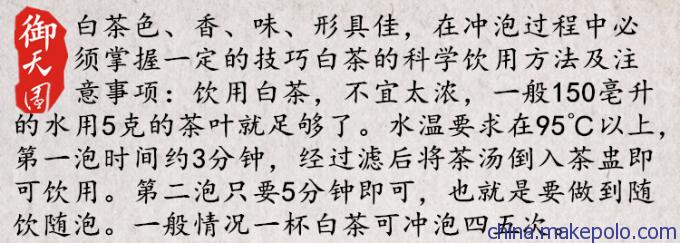 御天園
白茶色、香、味、形具佳，在冲泡过程中必
须掌握一定的技巧白茶的科学饮用方法及注
意事项：饮用白茶，不宜太浓，一般150毫升
的水用5克的茶叶就足够了。水温要求在95℃以上，
第一泡时间约3分钟，经过滤后将茶汤倒入茶盅即
可饮用。第二泡只要5分钟即可，也就是要做到随
饮随泡。一般情况一杯白茶可冲泡四五次。
china.makepolo.com